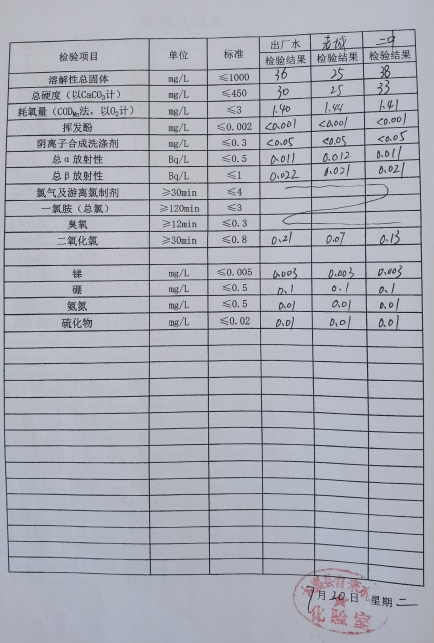 检验项目 单位 标准 出厂水 检验结果 老城 检验结果 二中 检验结果
溶解性总固体 mg/L ≤1000 36 25 38
总硬度（以CaCO₃计） mg/L ≤450 30 25 33
耗氧量（CODMn法，以O₂计） mg/L ≤3 1.40 1.44 1.41
挥发酚 mg/L ≤0.002 <0.001 <0.001 <0.001
阴离子合成洗涤剂 mg/L ≤0.3 <0.05 <0.05 <0.05
总α放射性 Bq/L ≤0.5 0.011 0.012 0.011
总β放射性 Bq/L ≤1 0.022 0.021 0.021
氯气及游离氯制剂 ≥30min ≤4
一氯胺（总氯） ≥120min ≤3
臭氧 ≥12min ≤0.3
二氧化氯 ≥30min ≤0.8 0.21 0.07 0.13
锑 mg/L ≤0.005 0.003 0.003 0.003
硼 mg/L ≤0.5 0.1 0.1 0.1
氨氮 mg/L ≤0.5 0.01 0.01 0.01
硫化物 mg/L ≤0.02 0.01 0.01 0.01
7月20日 星期二
化验室